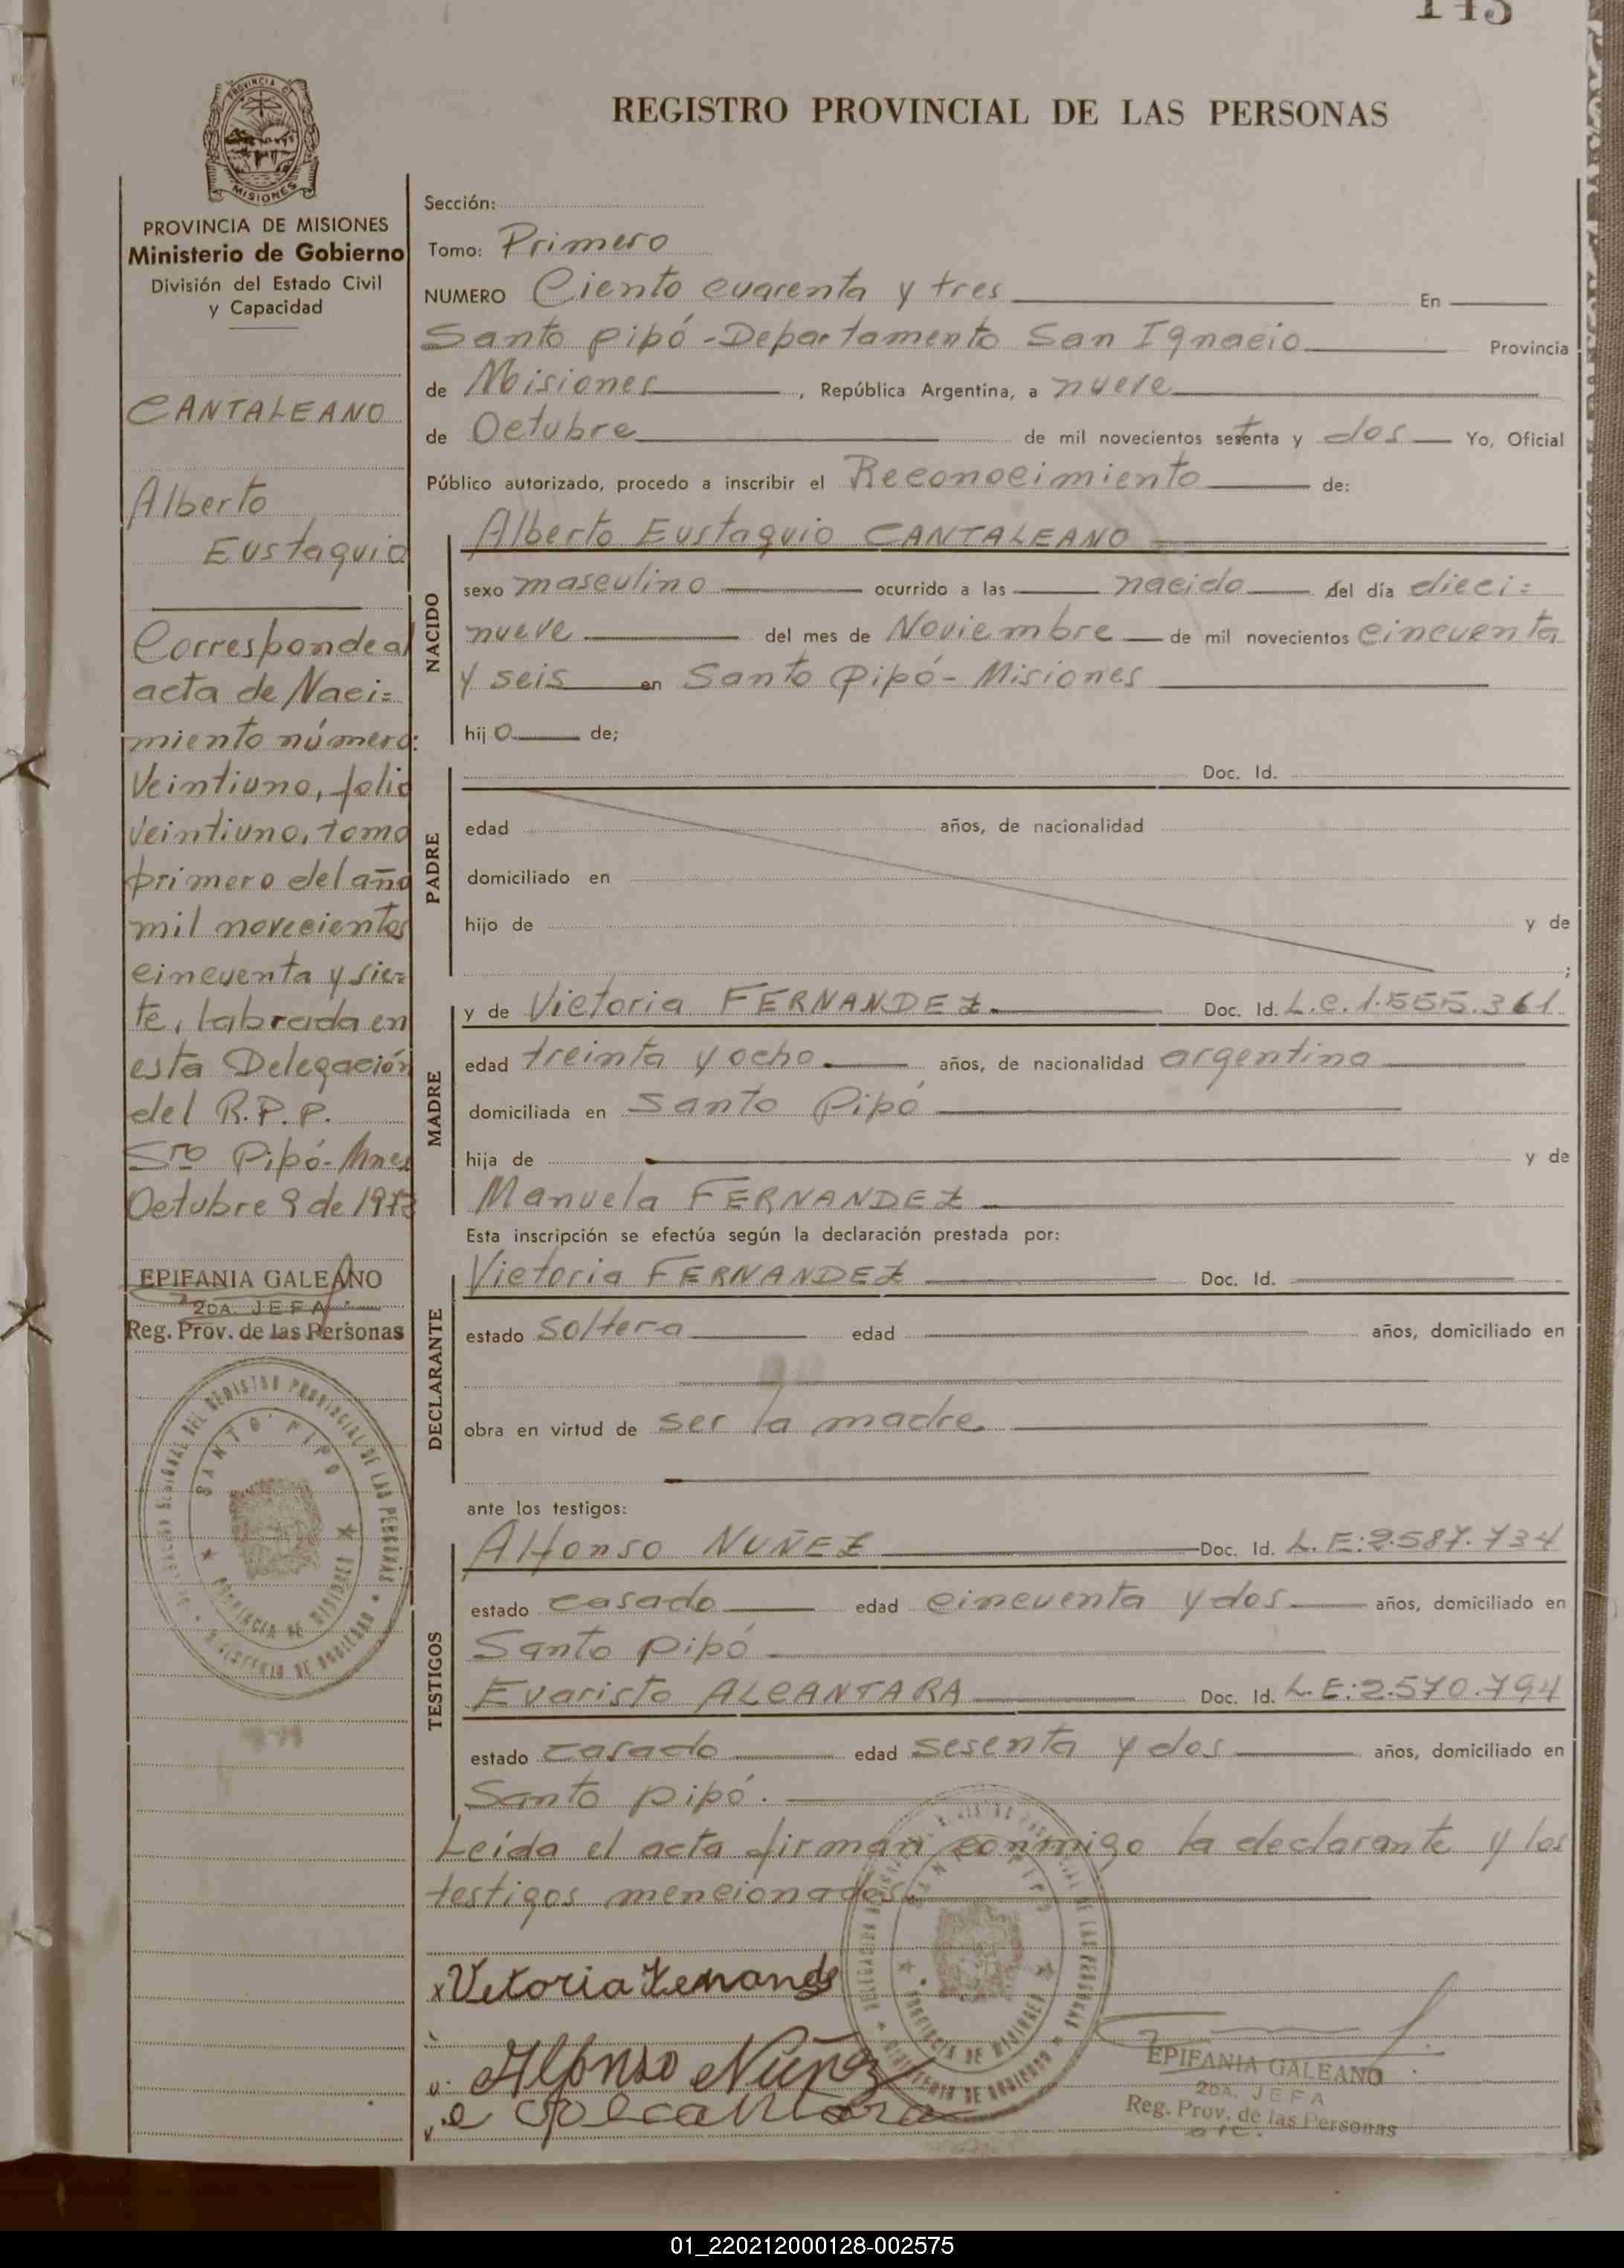 143
PROVINCIA DE
MISIONES
REGISTRO PROVINCIAL DE LAS PERSONAS
PROVINCIA DE MISIONES
Ministerio de Gobierno
División del Estado Civil
y Capacidad
CANTALEANO
Alberto
Eustaquio
Corresponde al
acta de Naci=
miento número:
Veintiuno, folio
Veintiuno, tomo
primero del año
mil novecientos
cincuenta y sie=
te, labrada en
esta Delegación
del R.P.P.
Sto Pipó-Mnes
Octubre 9 de 1972
EPIFANIA GALEANO
2DA. JEFA
Reg. Prov. de las Personas
SANTO PIPO
PROVINCIA DE MISIONES
MINISTERIO DE GOBIERNO
Sección:
Tomo: Primero
NUMERO Ciento cuarenta y tres En
Santo Pipó-Departamento San Ignacio Provincia
de Misiones, República Argentina, a nueve
de Octubre de mil novecientos setenta y dos Yo, Oficial
Público autorizado, procedo a inscribir el Reconocimiento de:
NACIDO
Alberto Eustaquio CANTALEANO
sexo masculino ocurrido a las nacido del día dieci=
nueve del mes de Noviembre de mil novecientos cincuenta
y seis en Santo Pipó- Misiones
hijo de;
PADRE
Doc. Id.
edad años, de nacionalidad
domiciliado en
hijo de y de
;
MADRE
y de Victoria FERNANDEZ. Doc. Id. L.C. 1.555.361
edad treinta y ocho. años, de nacionalidad argentina
domiciliada en Santo Pipó
hija de y de
Manuela FERNANDEZ
Esta inscripción se efectúa según la declaración prestada por:
DECLARANTE
Victoria FERNANDEZ Doc. Id.
estado soltera edad años, domiciliado en
obra en virtud de ser la madre
ante los testigos:
TESTIGOS
Alfonso NUÑEZ Doc. Id. L.E:2.587.734
estado casado edad cincuenta y dos años, domiciliado en
Santo Pipó
Evaristo ALCANTARA Doc. Id. L.E:2.570.794
estado casado edad sesenta y dos años, domiciliado en
Santo Pipó.
Leída el acta firman conmigo la declarante y los
testigos mencionados.
x Vitoria Fernande
Alfonso Núñez
e Alcantara
EPIFANIA GALEANO
2DA. JEFA
Reg. Prov. de las Personas
01_220212000128-002575